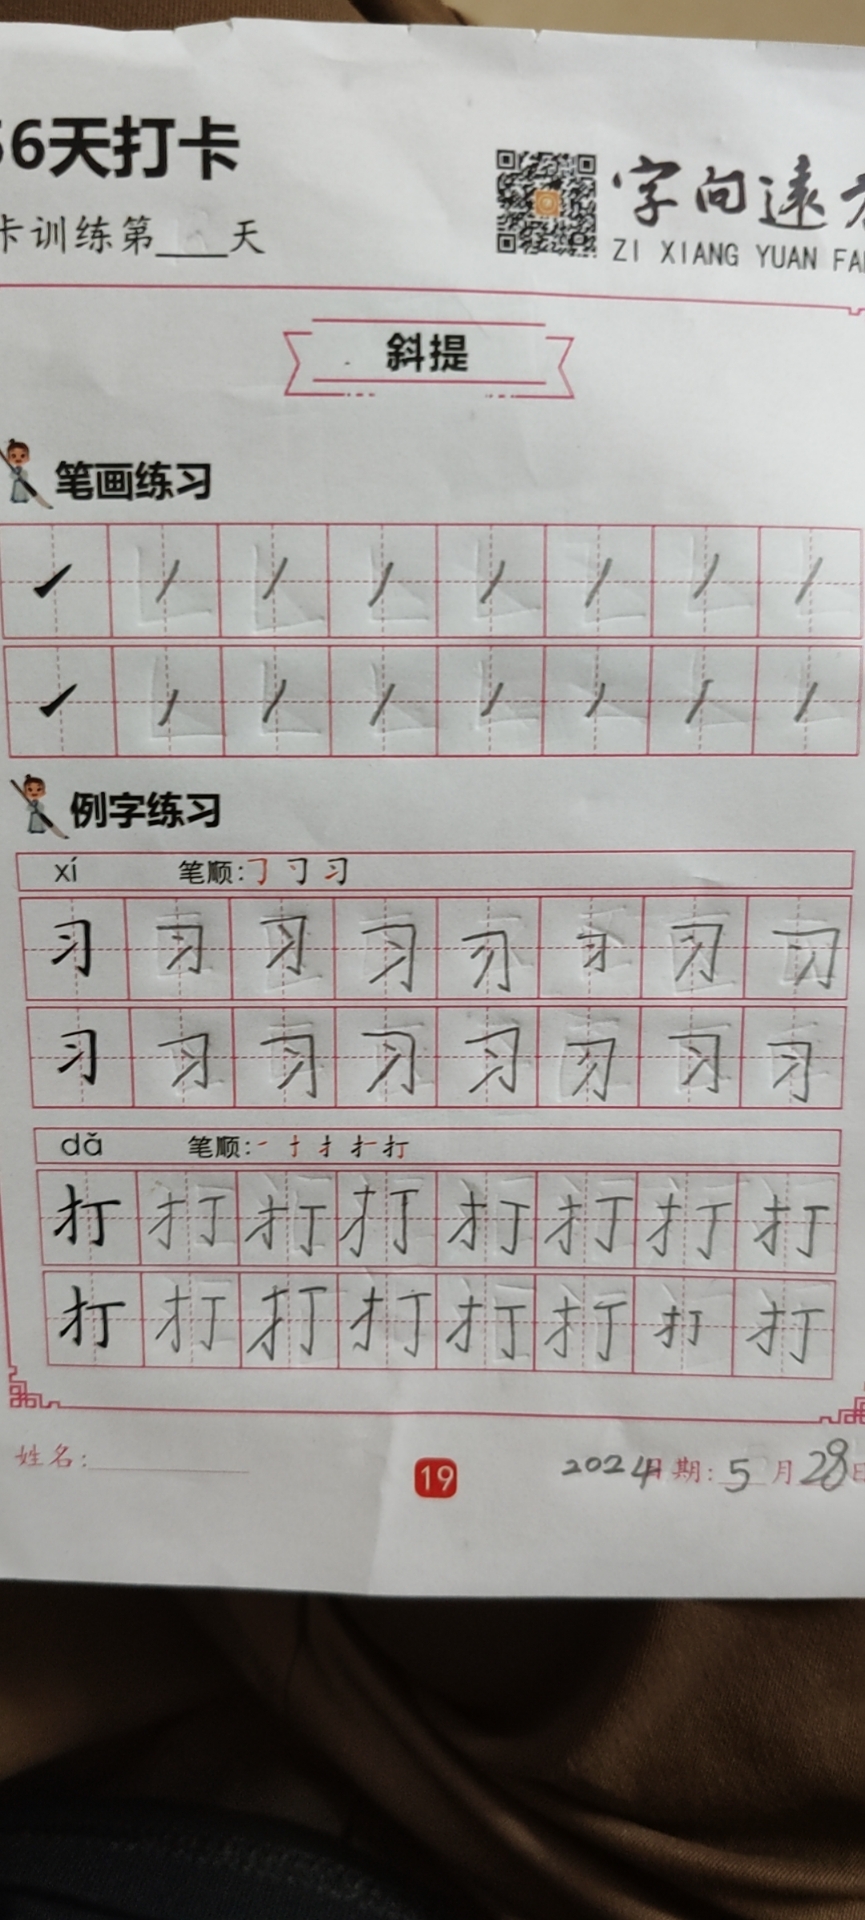 6天打卡
卡训练第____天
字向遠方
ZI XIANG YUAN FA
斜提
笔画练习
例字练习
xí 笔顺:㇆ 习
习 习 习 习 习 习 习 习
习 习 习 习 习 习 习 习
dǎ 笔顺:一 十 扌 扌一 打
打 打 打 打 打 打 打 打
打 打 打 打 打 打 打 打
姓名: 19 2024日期:5月28日